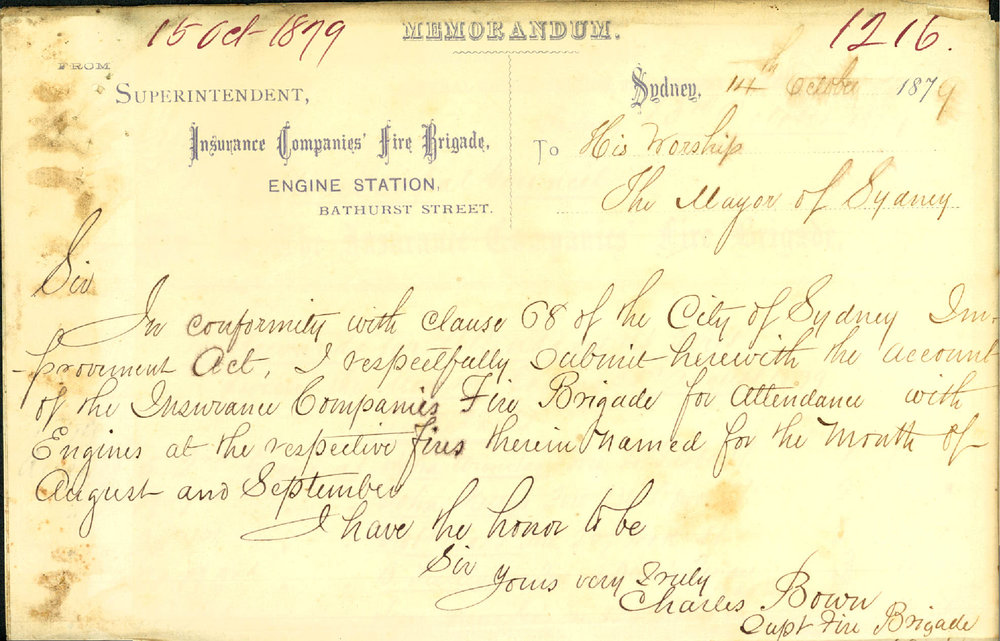 15 Oct 1879
MEMORANDUM.
1216.
FROM
SUPERINTENDENT,
Insurance Companies' Fire Brigade,
ENGINE STATION,
BATHURST STREET.
Sydney, 14th October 1879
To His Worship
The Mayor of Sydney
Sir
In conformity with clause 68 of the City of Sydney Im-
-provement Act, I respectfully submit herewith the account
of the Insurance Companies Fire Brigade for Attendance with
Engines at the respective fires therein named for the Month of
August and September
I have the honor to be
Sir
Yours very truly
Charles Bown
Supt Fire Brigade